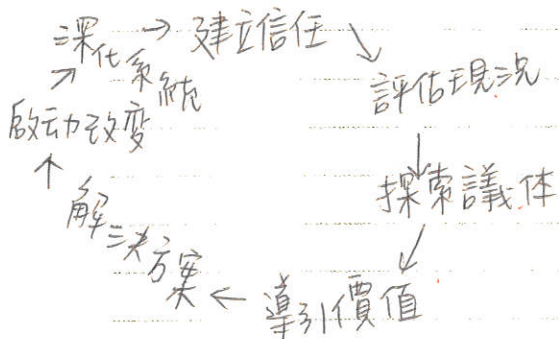 深化系統
建立信任
評估現況
探索議体
導引價值
解決方案
啟动改变